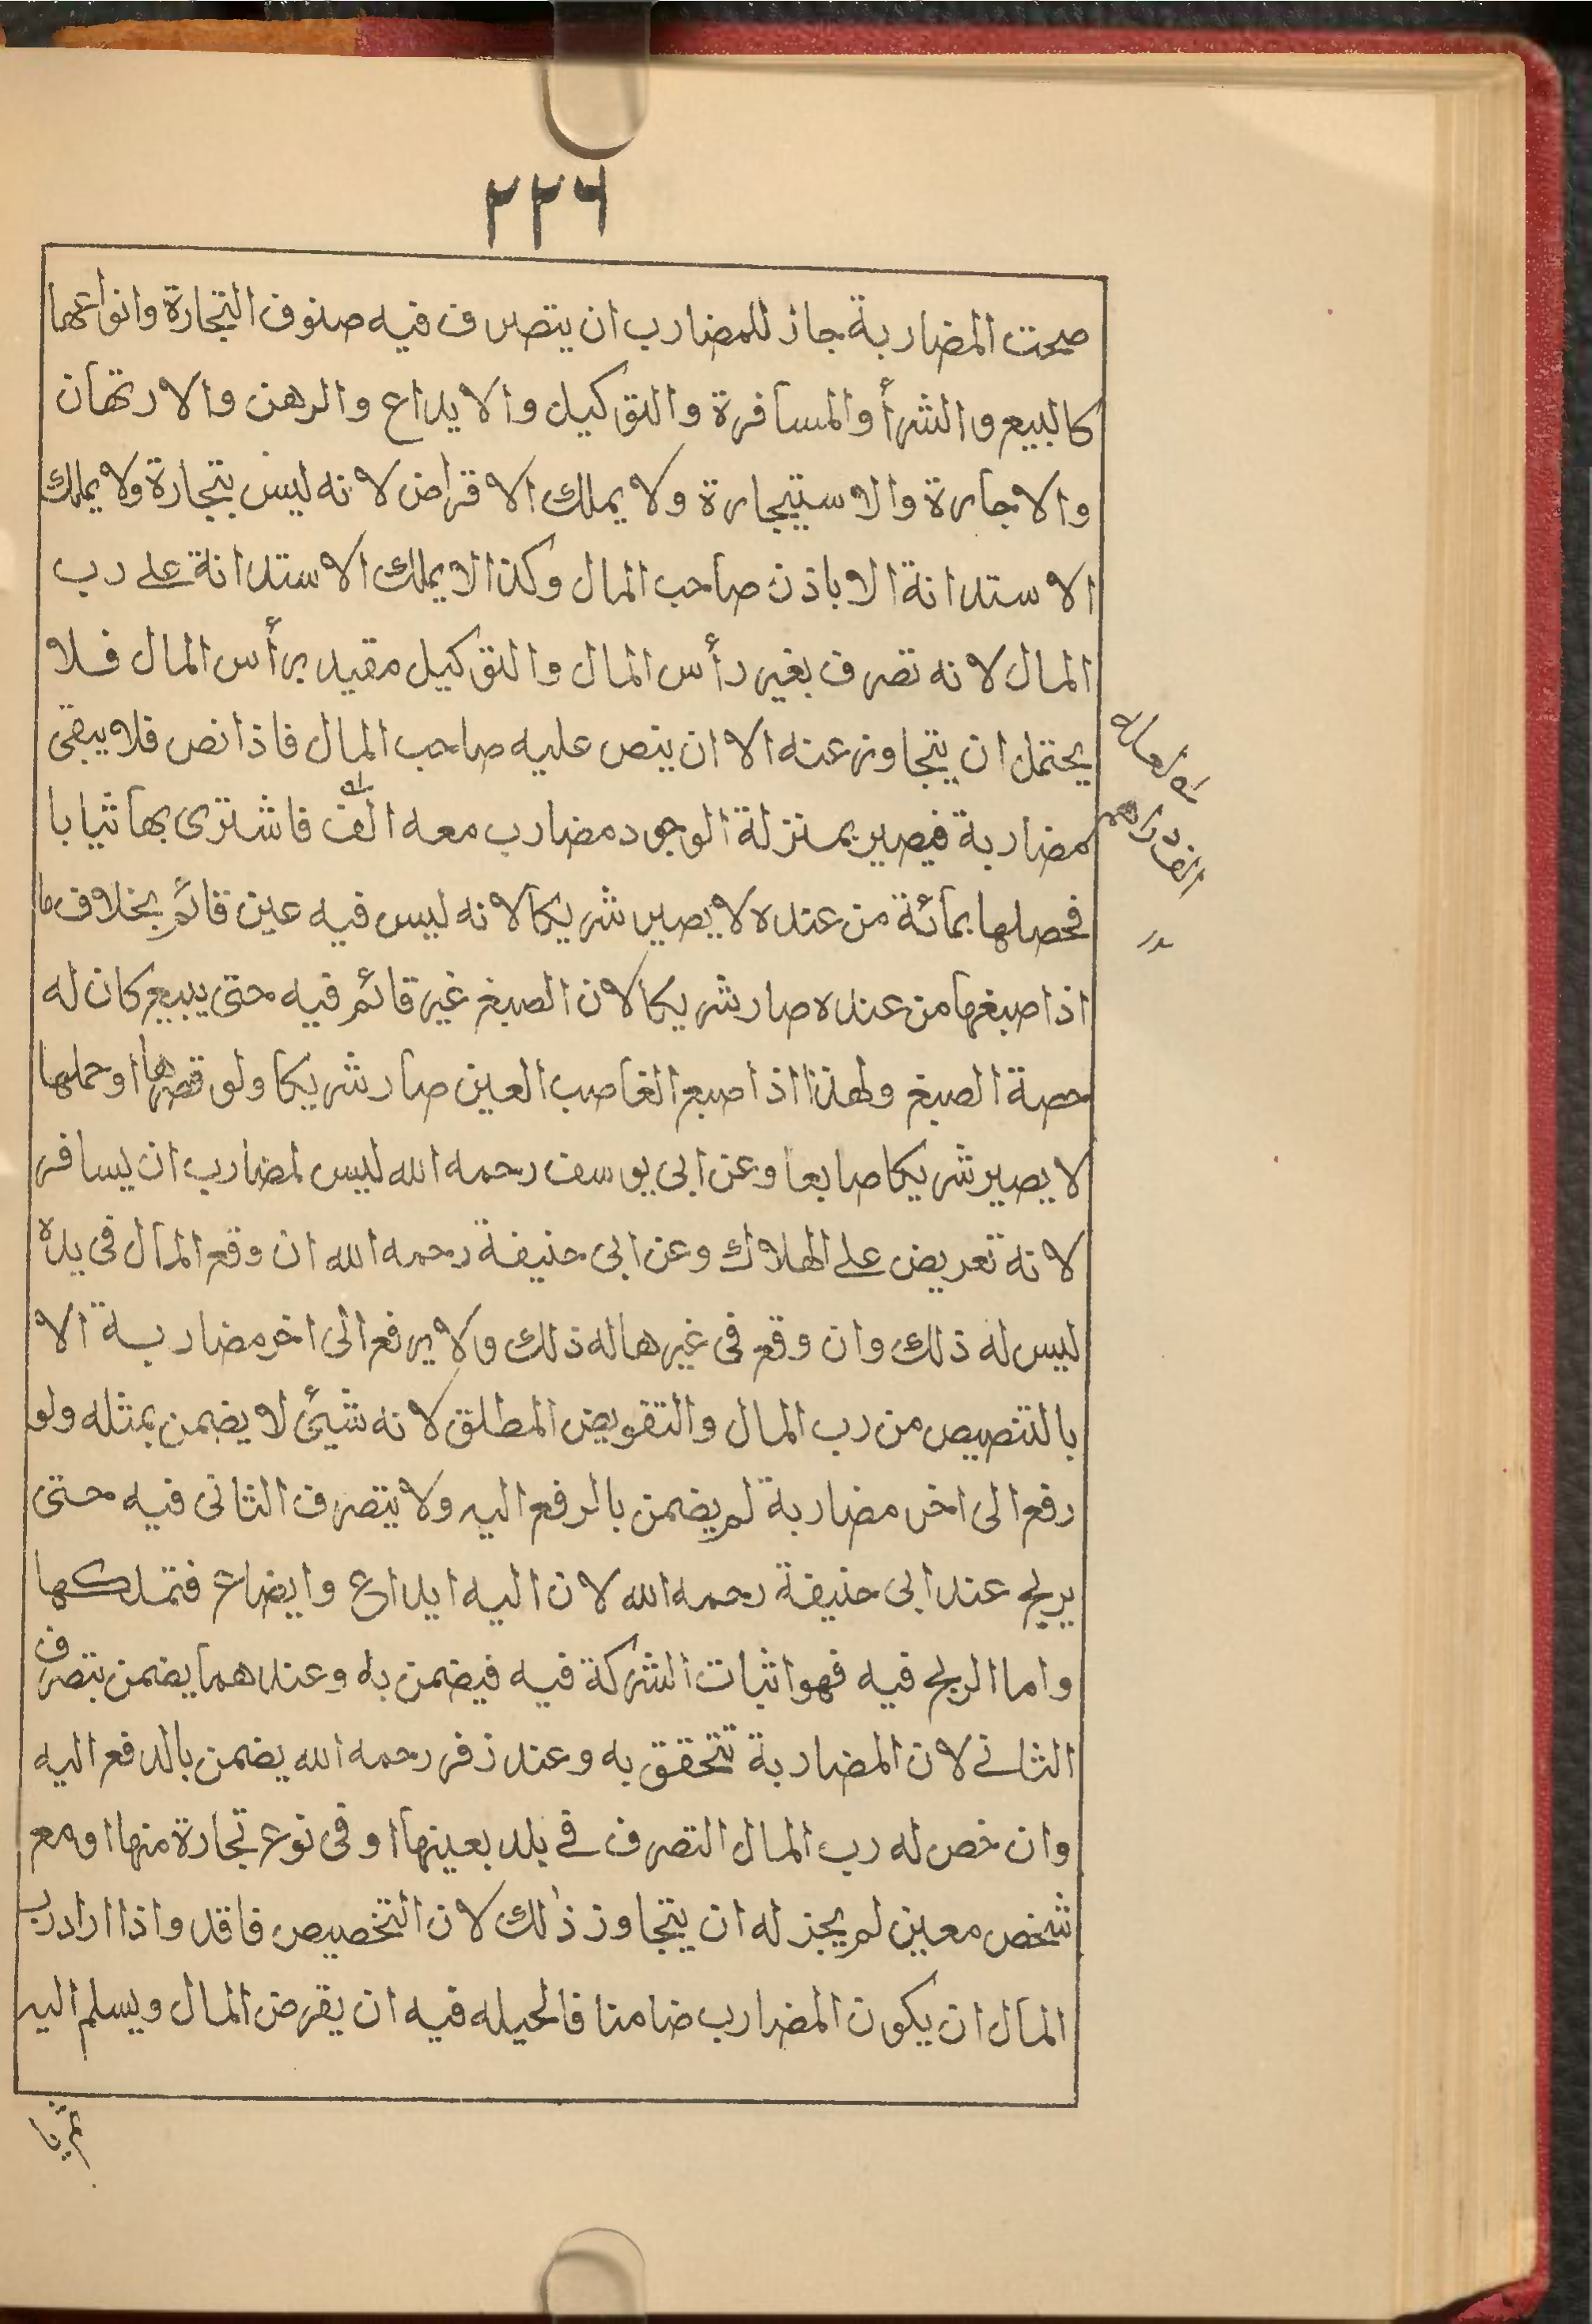 ٢٢٦
صحت المضاربة جاز للمضارب ان يتصرف فيه صنوف التجارة وانواعها
كالبيع والشرأ والمسافرة والتوكيل والايداع والرهن والارتهان
والاجارة والاستيجارة ولا يملك الاقراض لانه ليس بتجارة ولا يملك
الاستدانة الا باذن صاحب المال وكذا لا يملك الاستدانة على رب
المال لانه تصرف بغير رأس المال والتوكيل مقيد برأس المال فلا
يحتمل ان يتجاوز عنه الا ان ينص عليه صاحب المال فاذا نص فلا يبقى
مضاربة فيصير بمنزلة الوجود مضارب معه الف فاشترى بها ثيابا
فحصلها بمائة من عنده لا يصير شريكا لانه ليس فيه عين قائم بخلاف ما
اذا صبغها من عنده صار شريكا لان الصبغ غير قائم فيه حتى يبيع كان له
حصة الصبغ ولهذا اذا صبع الغاصب العين صار شريكا ولو قصرها او حملها
لا يصير شريكا صابعا وعن ابى يوسف رحمه الله ليس لمضارب ان يسافر
لانه تعريض على الهلاك وعن ابى حنيفة رحمه الله ان وقع المال فى يده
ليس له ذلك وان وقع فى غيرها له ذلك ولا يرفع الى اخر مضاربة الا
بالتنصيص من رب المال والتفويض المطلق لانه شيئ لا يضمن بمثله ولو
رفع الى اخر مضاربة لم يضمن بالرفع اليه ولا يتصرف الثانى فيه حتى
يربح عند ابى حنيفة رحمه الله لان اليه ايداع وايضاع فتملكها
واما الربح فيه فهو اثبات الشركة فيه فيضمن به وعندهما يضمن بتصرف
الثانے لان المضاربة تتحقق به وعند زفر رحمه الله يضمن بالدفع اليه
وان خص له رب المال التصرف فے بلد بعينها او فى نوع تجارة منها او مع
شخص معين لم يجز له ان يتجاوز ذلك لان التخصيص فاقد واذا اراد رب
المال ان يكون المضارب ضامنا فالحيله فيه ان يقرض المال ويسلم اليه